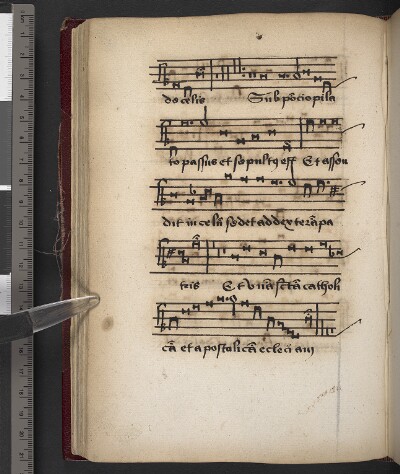 do celis Sub pōcio pila
to passus et sepultꝰ est Et ascen
dit in celū sedet ad dexterā pa
tris Et vnā sctā catholi
cā et apostolicā ecclesiam